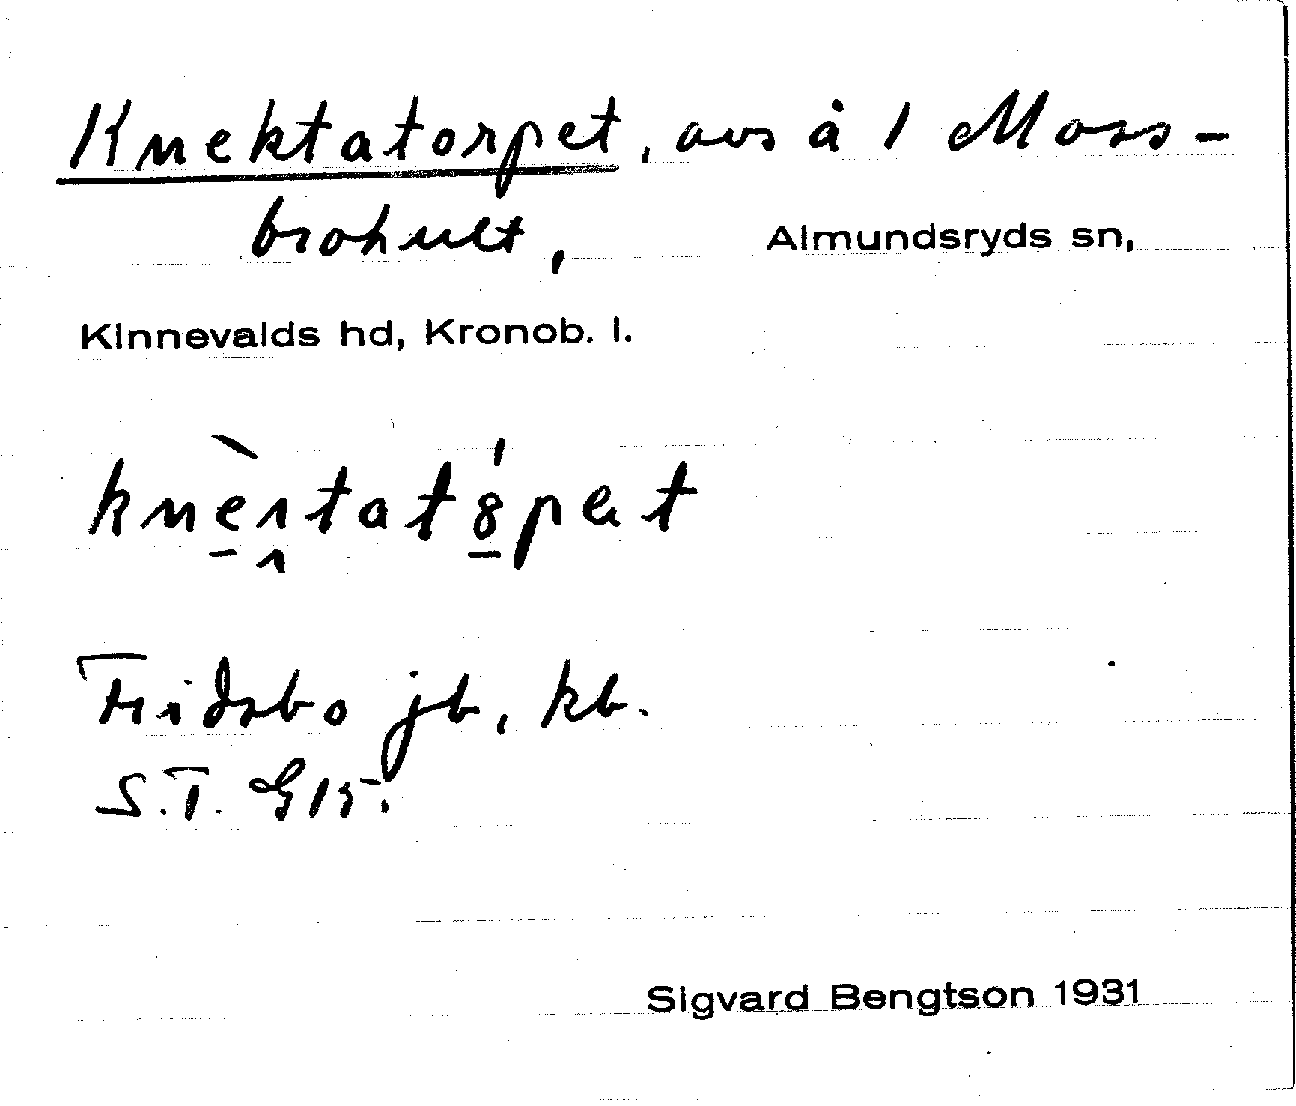 Knektatorpet, avs å 1 Moss-
brohult, Almundsryds sn,
Kinnevalds hd, Kronob. l.
Fridsbo jb, kb.
S.T. G15.
Sigvard Bengtson 1931